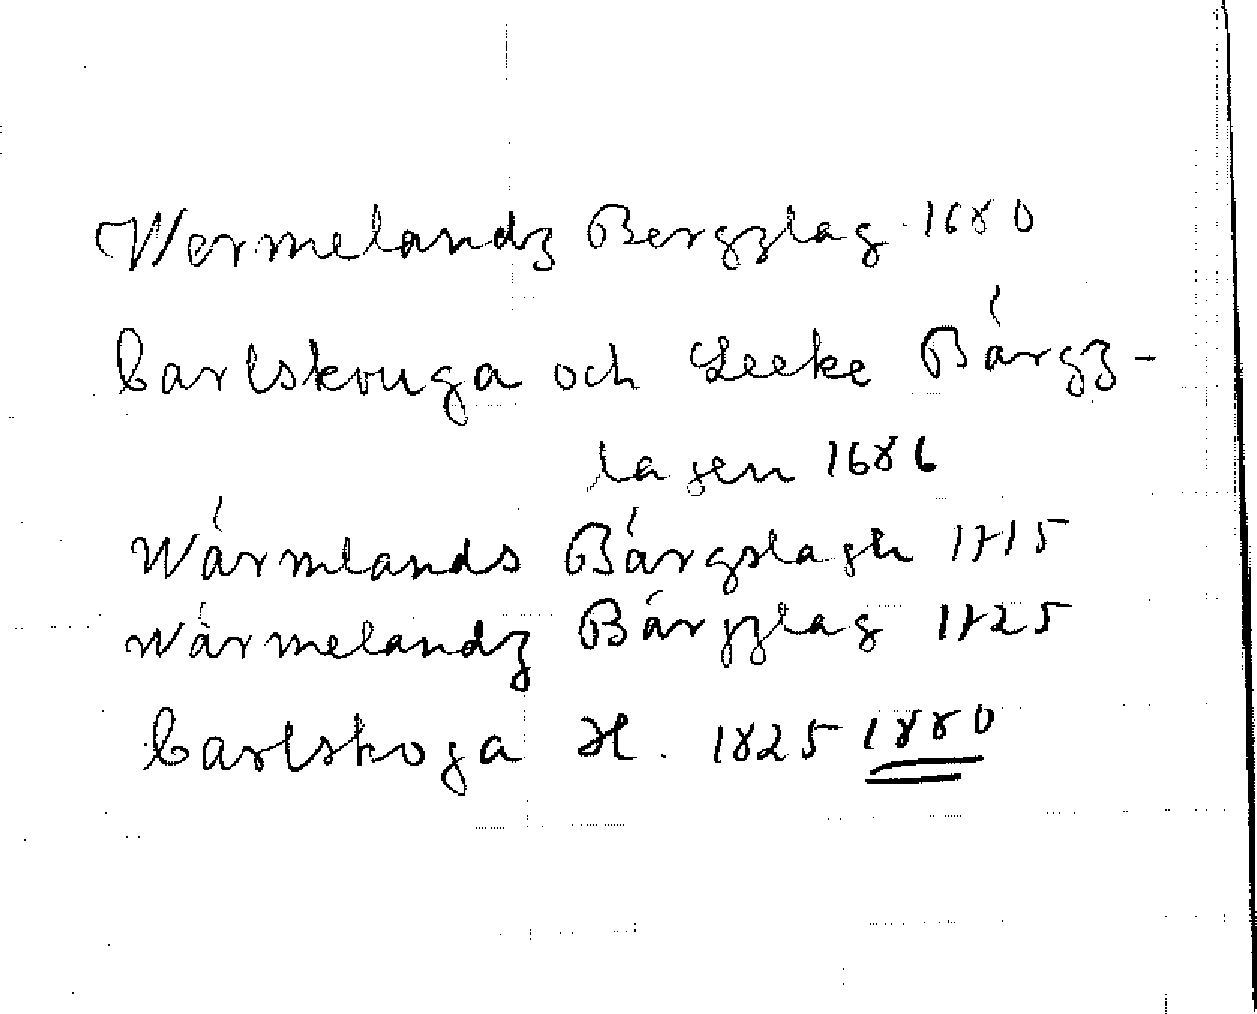 Wermelandz Bergzlag 1680
Carlskouga och Leeke Bärgz-
lagen 1686
Wärmlands Bärgslagh 1715
Wärmelandz Bärgzlag 1725
Carlskoga H. 1825 1880